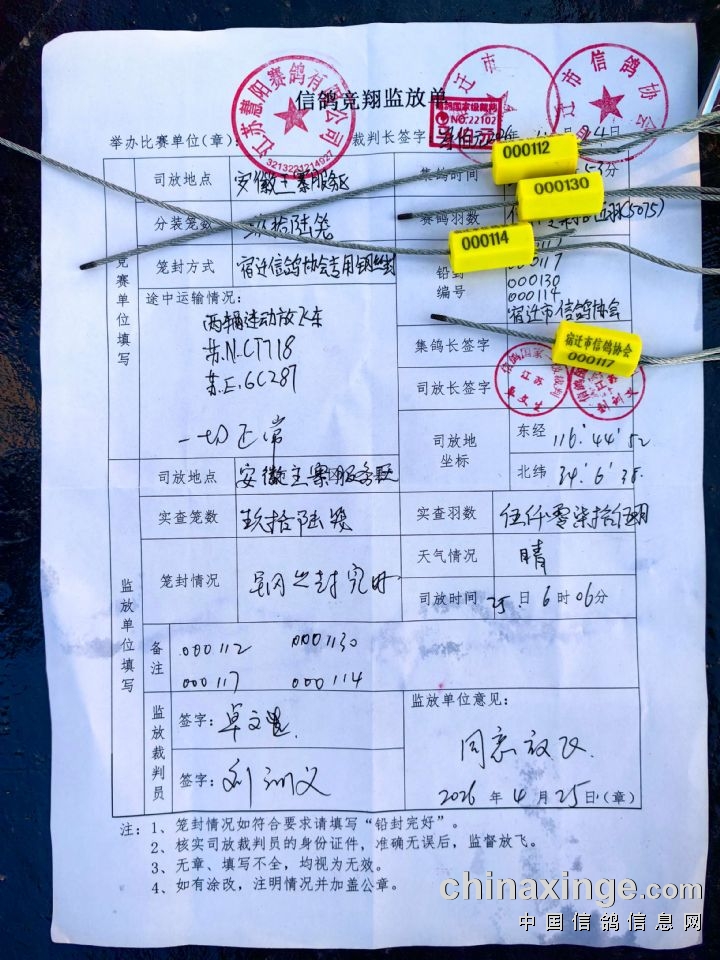 信鸽竞翔监放单
江苏慧阳赛鸽有限公司
3213221214027
宿迁市信鸽协会
NO.22102
举办比赛单位(章):
裁判长签字:
司放地点 安徽王寨服务区
集鸽时间 53分
000112
000130
000114
分装笼数 玖拾陆笼
赛鸽羽数 (5075)
笼封方式 宿迁信鸽协会专用钢丝封
铅封编号 000117
000130
000114
宿迁市信鸽协会
竞赛单位填写
途中运输情况:
两辆运动放飞车
苏.N.CT718
苏.E.6C287
一切正常
宿迁市信鸽协会
000117
集鸽长签字
司放长签字
江苏
卓文兰
江苏
司放地坐标
东经 116°44′52
北纬 34°6′38
监放单位填写
司放地点 安徽王寨服务区
实查笼数 玖拾陆笼
实查羽数 伍仟零柒拾伍羽
笼封情况 钢丝封完好
天气情况 晴
司放时间 25日6时06分
备注
000112 0001130
000117 000114
监放裁判员
签字:
签字:
监放单位意见:
同意放飞
2026年4月25日(章)
注:1、笼封情况如符合要求请填写“铅封完好”。
2、核实司放裁判员的身份证件,准确无误后,监督放飞。
3、无章、填写不全,均视为无效。
4、如有涂改,注明情况并加盖公章。
chinaxinge.com
中国信鸽信息网